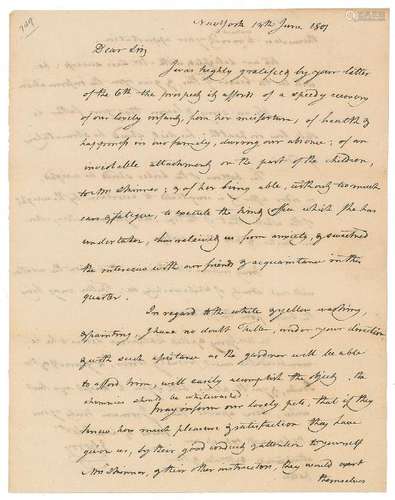 749
NewYork 12th June 1801
Dear Sir
I was highly gratified by your letter
of the 6th the prospect it affords of a speedy recovery
of our lovely infant, from her misfortune, of health &
happiness in our family, during our absence; of an
inviolable attachment on the part of the children,
to Mrs Skinner; & of her being able, without too much
care & fatigue, to execute the kind office which she has
undertaken, has relieved us from anxiety, & sweetned
the intercourse with our friends & acquaintance in this
quarter.
In regard to the white & yellow washing,
& painting, I have no doubt Tuller, under your direction
& with such assistance as the gardner will be able
to afford him, will easily accomplish the object. the
chimnies should be whitewashed
Pray inform our lovely pets, that if they
knew, how much pleasure & satisfaction they have
given us, by their good conduct & attention to yourself
Mrs Skinner, & their other instructors, they would exert
themselves